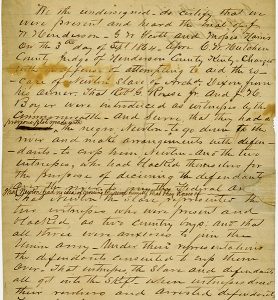 We the undersigned do certify that we
were present and heard the trial of J
W Henderson - G W Scott and Moses Harris
on the 3rd day of Feb 1864 before C W Hutchen
County Judge of Henderson County Ky - Charged
attempting to aid the
Slave Newton fixing from
his Owner. That G House Jr And J H
Boyer were introduced as witnesses by the
Commonwealth - And Swore, that they had
the negro Newton - to go down to the
river and make arrangements with defen-
dants to cross them Newton and the two
witnesses, who had blacked themselves for
the purpose of deceiving the defendants
Over the Federal
That Newton the slave represented the
two witnesses who were present and
blacked, as two country and that
all three were anxious to join the
Union Army - Under their representations
the defendants consented to cross them
Over - That witnesses the slave and defendants
all got into the Skiff when witnesses drew
their revolvers and arrested defendants